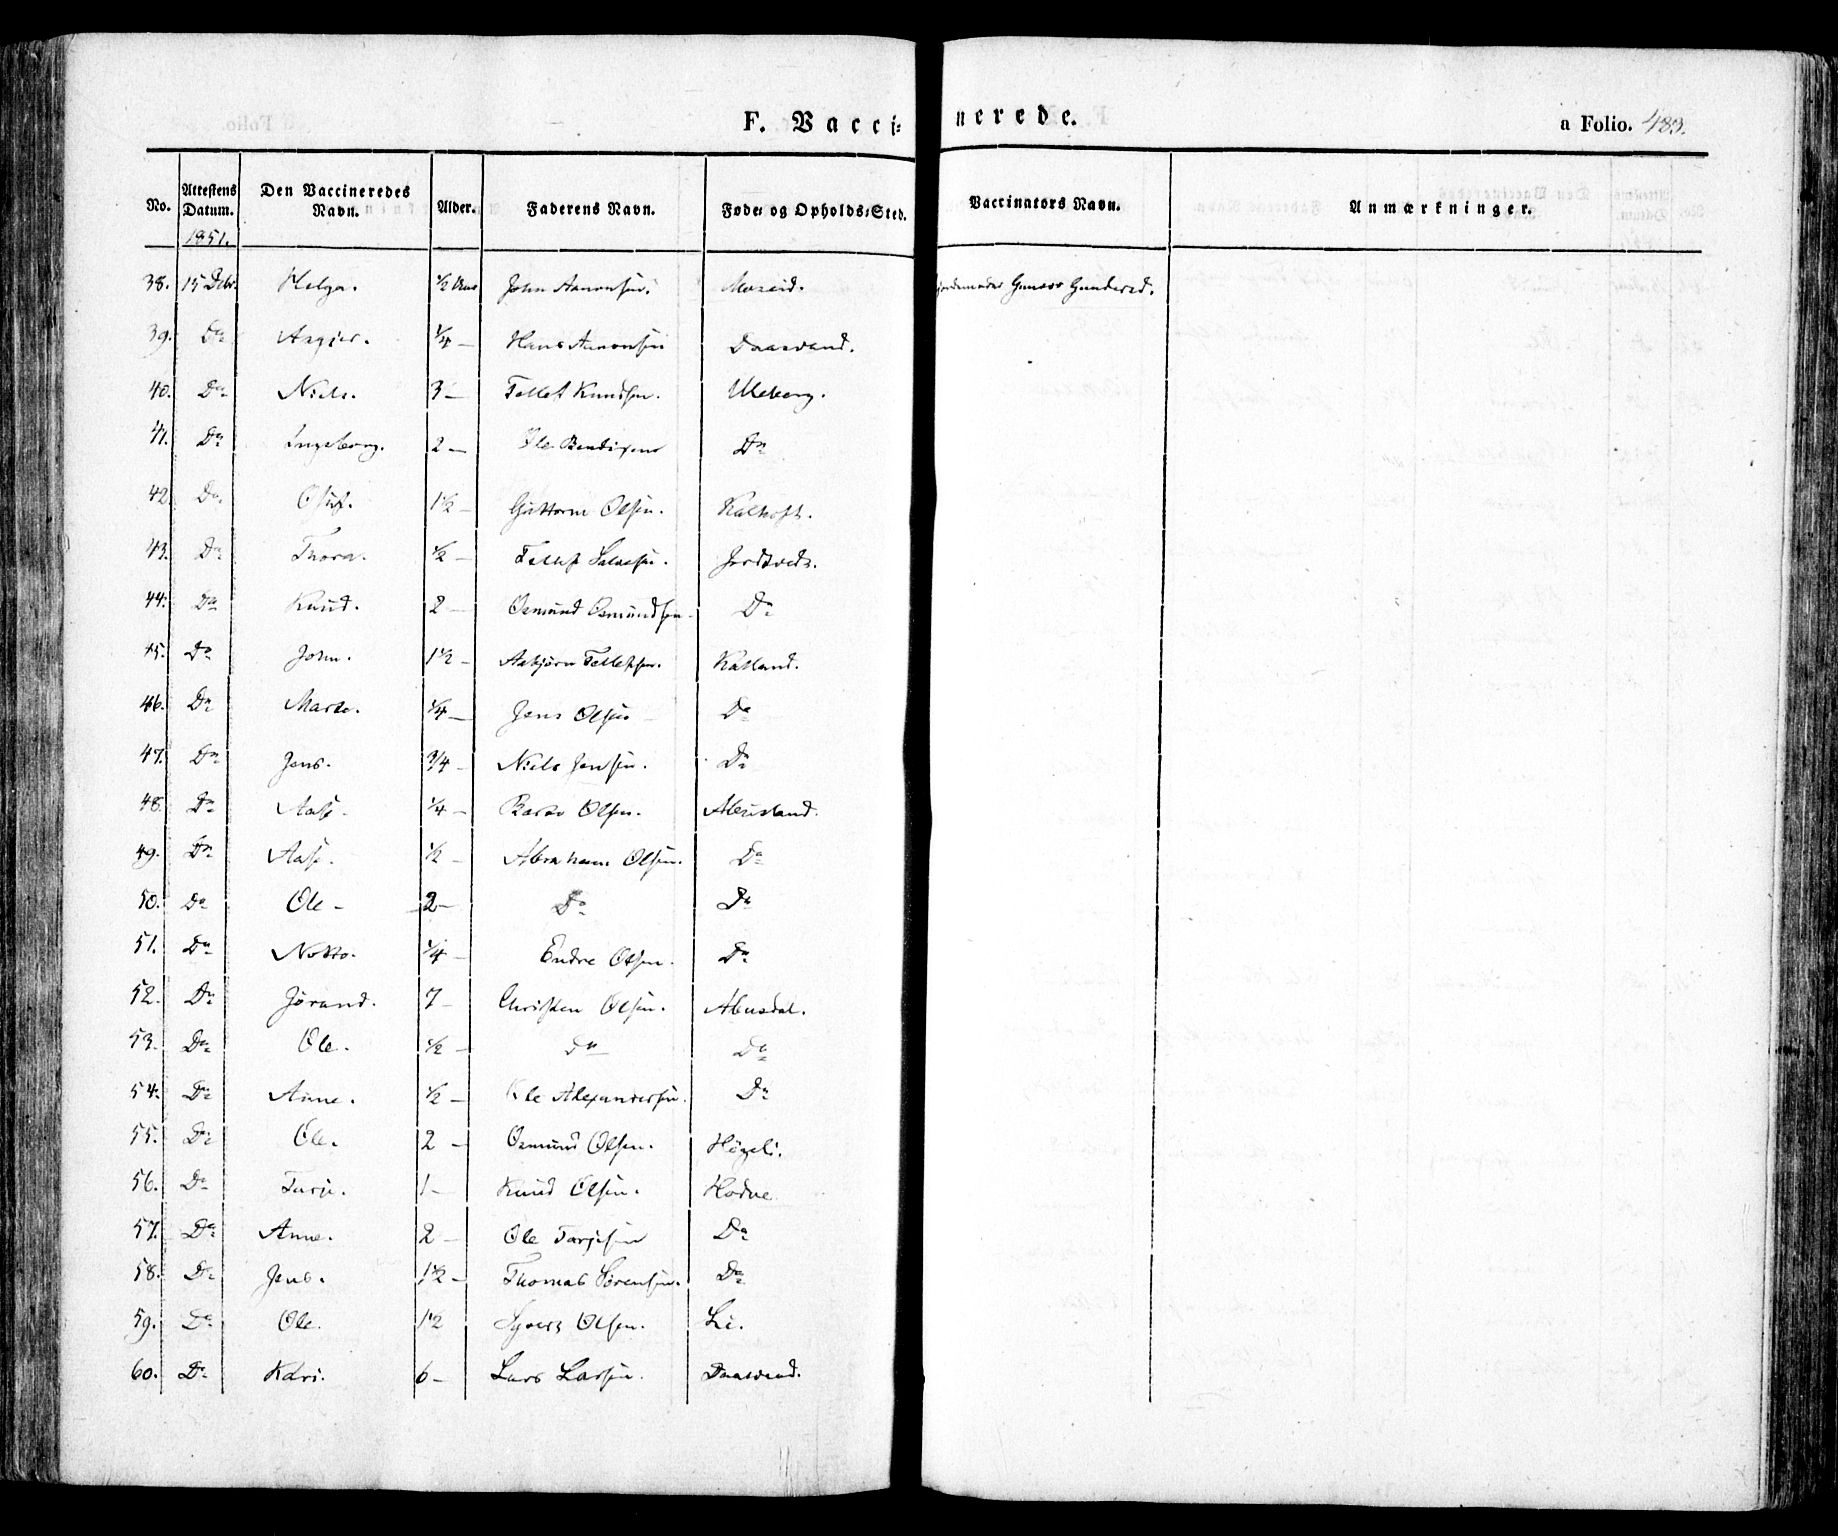 F. Vaccinerede.
a Folio. 483.
No. Attestens Datum. Den Vaccineredes Navn. Alder. Faderens Navn. Føde- og Opholds-Sted. Vaccinators Navn. Anmærkninger.
1851.
38. 15 Debr. Helga. ½ John Aanonsen. Moseid. Jordemoder Gunvor Gundersd.
39. Do Asgjer. ¼ — Hans Aanonsen Daasvand.
40. Do Niels. 3 — Tellef Knudsen. Uleberg.
41. Do Ingeborg. 2 — Ole Bendixsen Do
42. Do 1½ — Guttorm Olsen.
43. Do Thora. ½ — Tellef Salvesen. Jordtvedt.
44. Do Knud. 2 — Osmund Osmundsen. Do
45. Do John. 1½ — Asbjørn Tellefsen. Katland.
46. Do Marte. ¼ — Jens Olsen Do
47. Do Jens. ¾ — Niels Jensen. Do
48. Do Aase. ¼ — Olsen. Abusland.
49. Do Aase. ½ — Abraham Olsen. Do
50. Do Ole — 2 — Do Do
51. Do ¼ — Endre Olsen. Do
52. Do Jørand. 7 — Christen Olsen. Abusdal.
53. Do Ole. ½ — Do Do
54. Do Anne. ½ — Ole Alexandersen. Do
55. Do Ole. 2 — Osmund Olsen. Høgeli.
56. Do Tarje. 1 — Knud Olsen. Hodne
57. Do Anne. 2 — Ole Tarjesen Do
58. Do Jens. 1½ — Thomas Sørensen. Do
59. Do Ole. 1½ Sjvers Olsen. Li.
60. Do Kari. 6 — Lars Larsen. Daasvand.